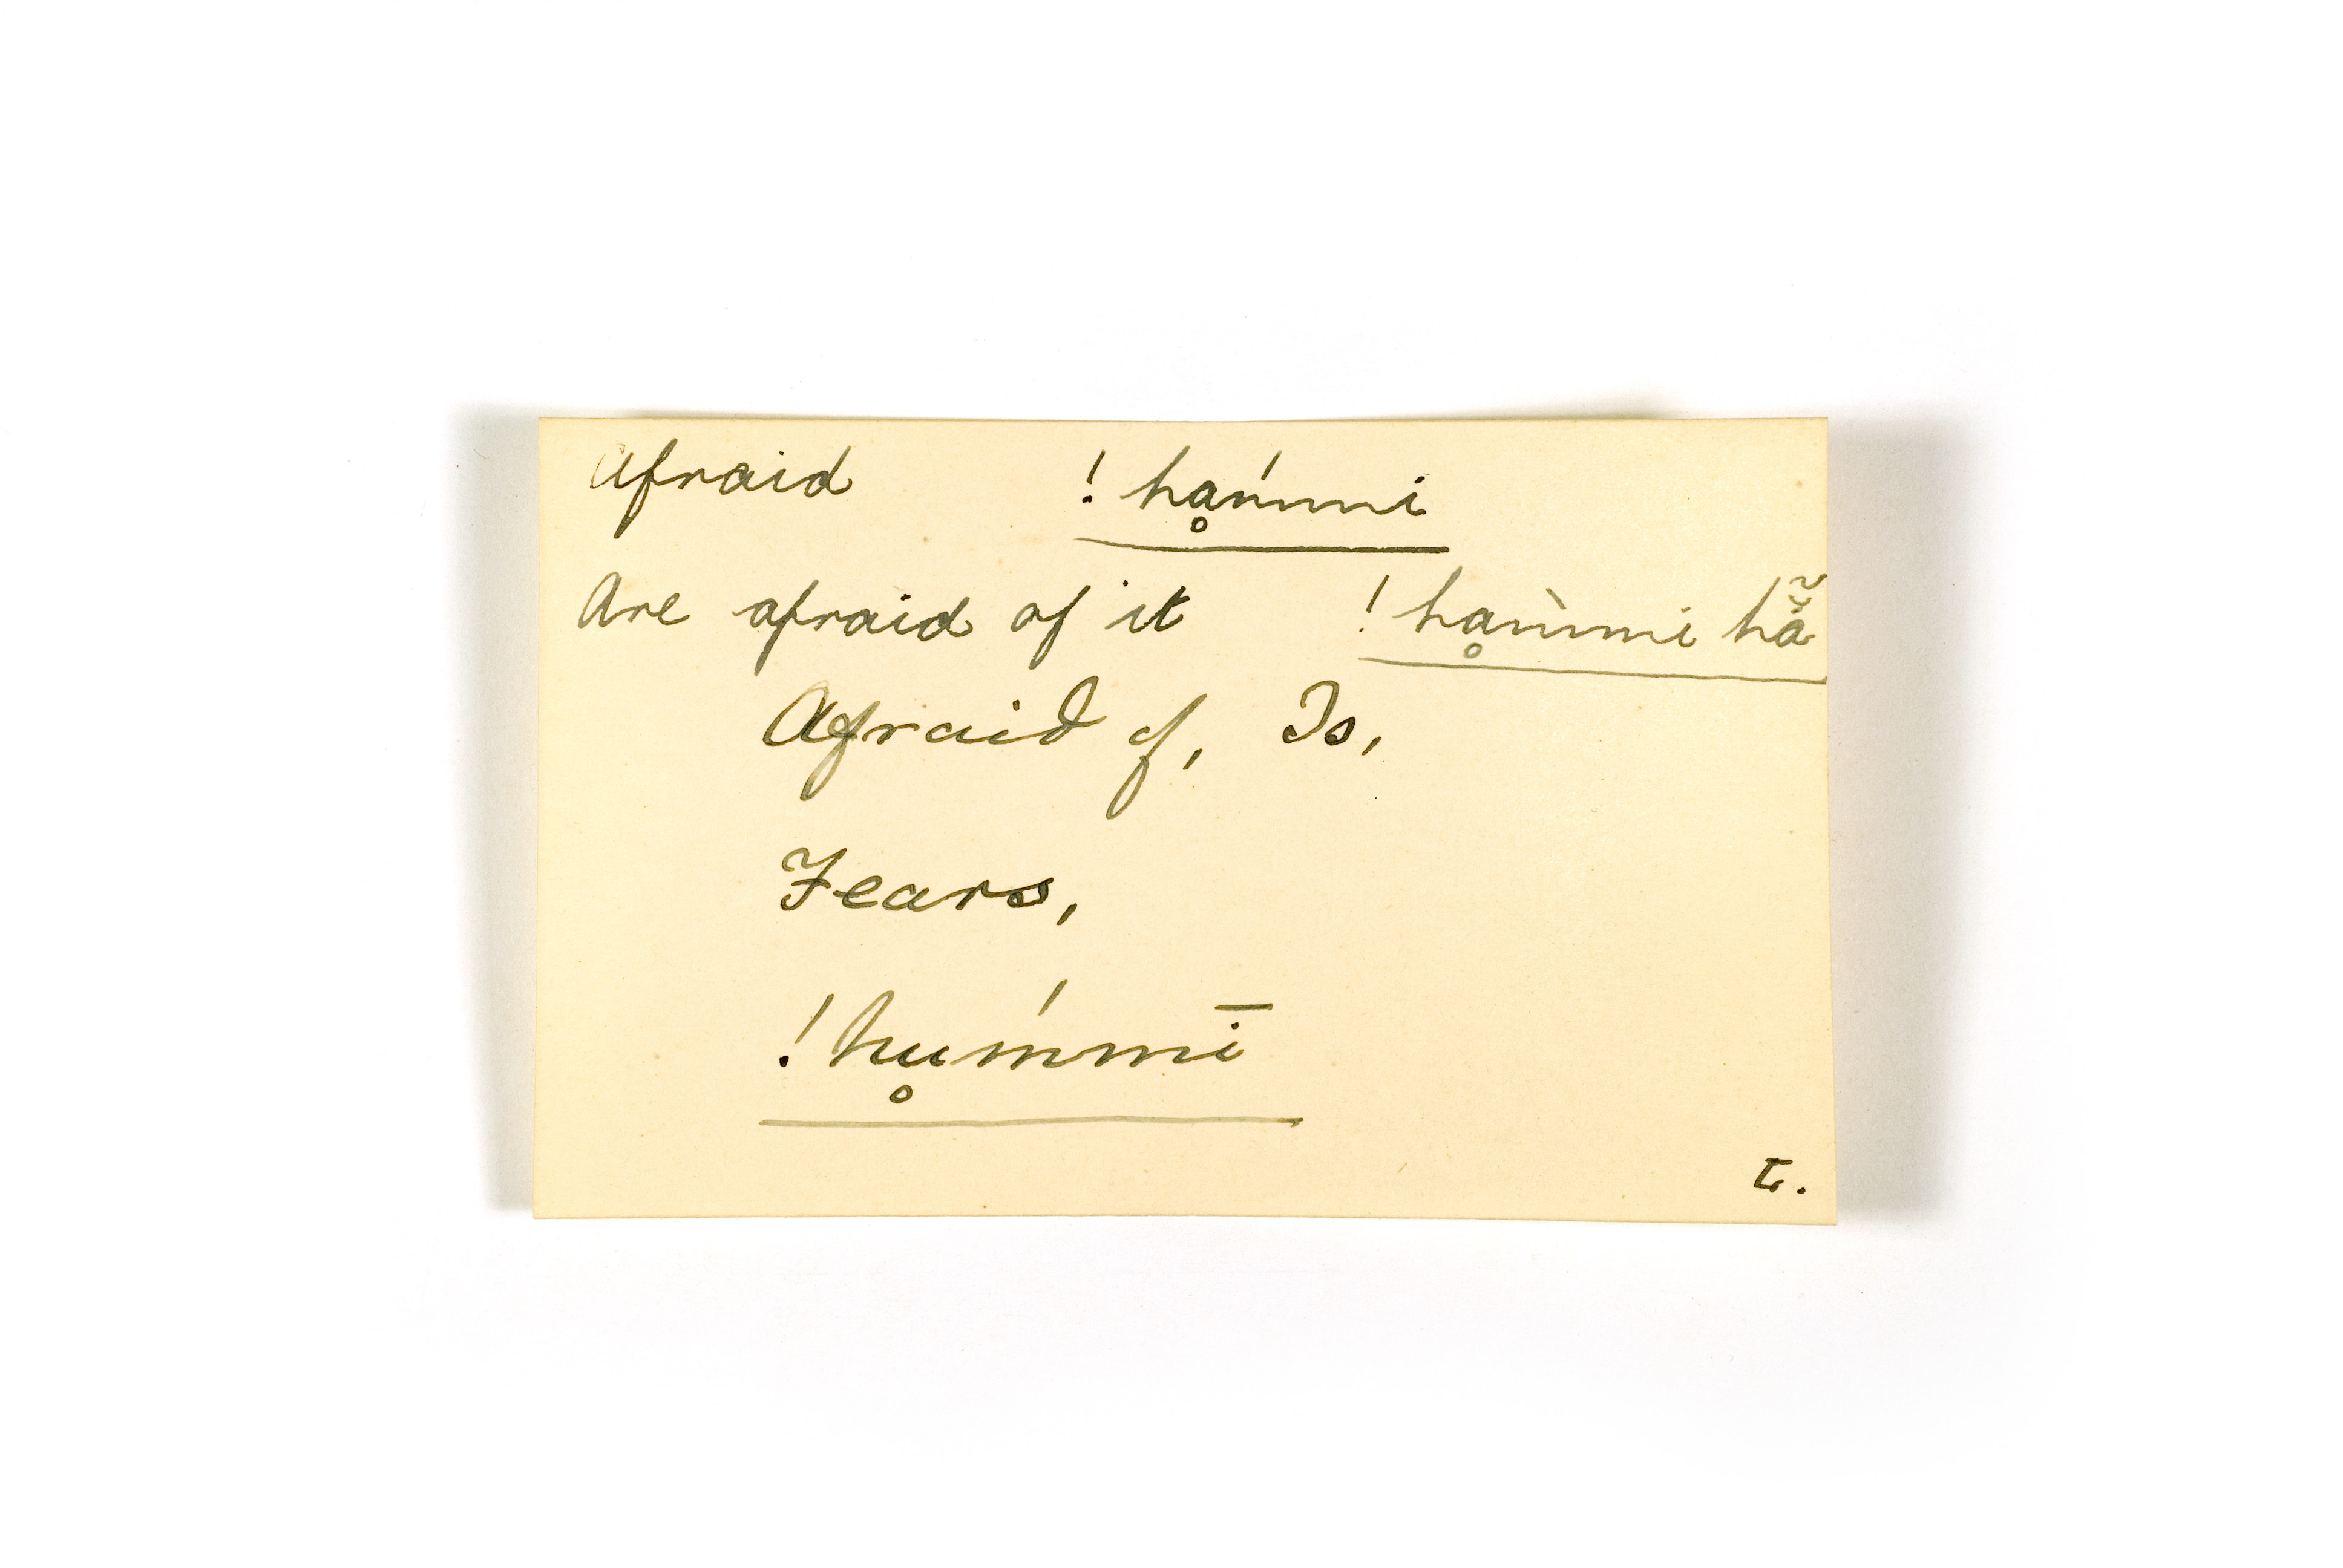 Afraid ! hḁḿmi
Are afraid of it ! hḁm̀mi hã̆
Afraid of, Is,
Fears,
! hu̥ḿmī
L.